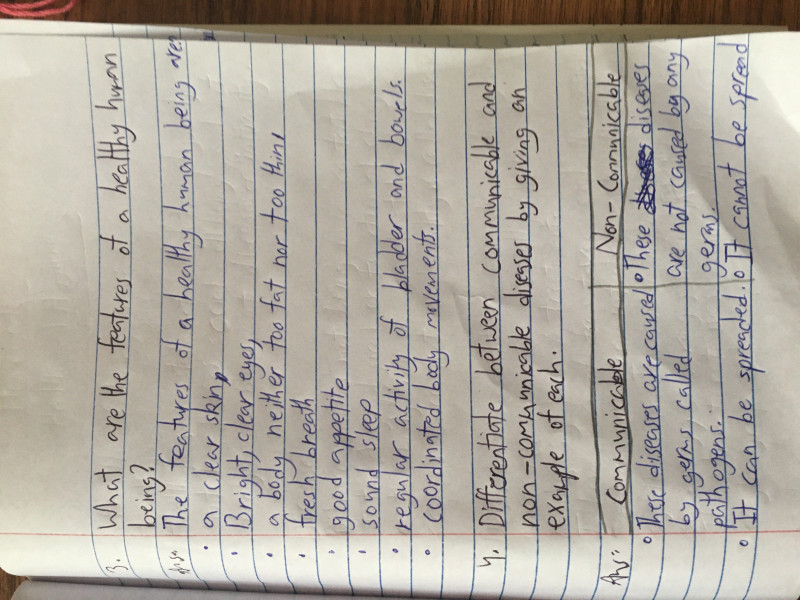 3. What are the features of a healthy human
being?
Ans: The features of a healthy human being are:
• a clear skin,
• Bright, clear eyes,
• a body neither too fat nor too thin,
• fresh breath
• good appetite
• sound sleep
• regular activity of bladder and bowels.
• coordinated body movements.
4. Differentiate between communicable and
non-comunicable diseases by giving an
example of each.
Ans: Communicable Non-Communicable
• These diseases are caused • These diseases
by germs called are not caused by any
pathogens. germs.
• It can be spreaded. • It cannot be spread